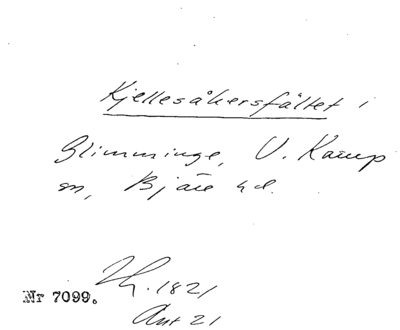 Kjellesåkersfältet i
Glimminge, V. Karup
sn, Bjäre hd.
Nr 7099.
1821
Ant 21